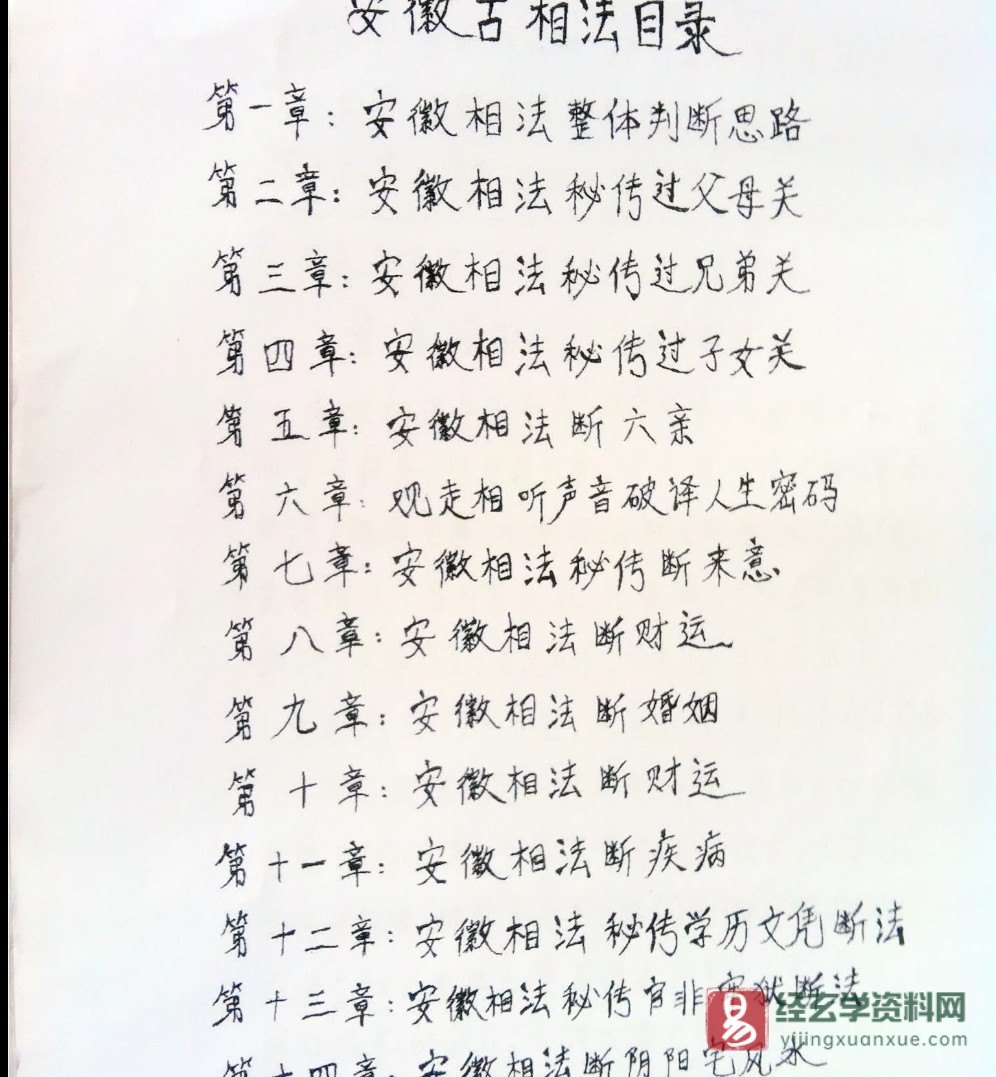 安徽古相法目录
第一章：安徽相法整体判断思路
第二章：安徽相法秘传过父母关
第三章：安徽相法秘传过兄弟关
第四章：安徽相法秘传过子女关
第五章：安徽相法断六亲
第六章：观走相听声音破译人生密码
第七章：安徽相法秘传断来意
第八章：安徽相法断财运
第九章：安徽相法断婚姻
第十章：安徽相法断财运
第十一章：安徽相法断疾病
第十二章：安徽相法秘传学历文凭断法
第十三章：安徽相法秘传官非牢狱断法
第十四章：安徽相法断阴阳宅风水
易
经玄学资料网
yijingxuanxue.com